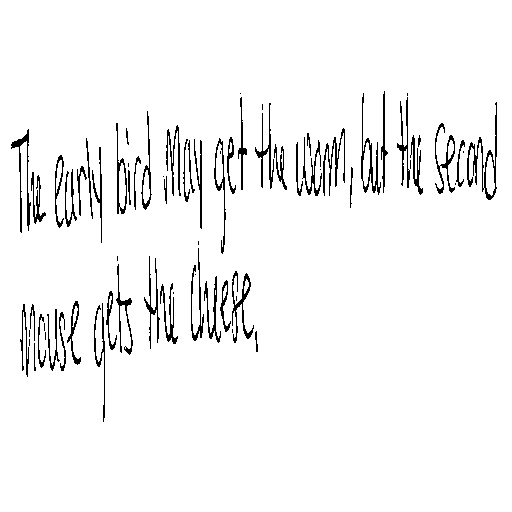 The early bird may get the worm, but the second
mouse gets the cheese,